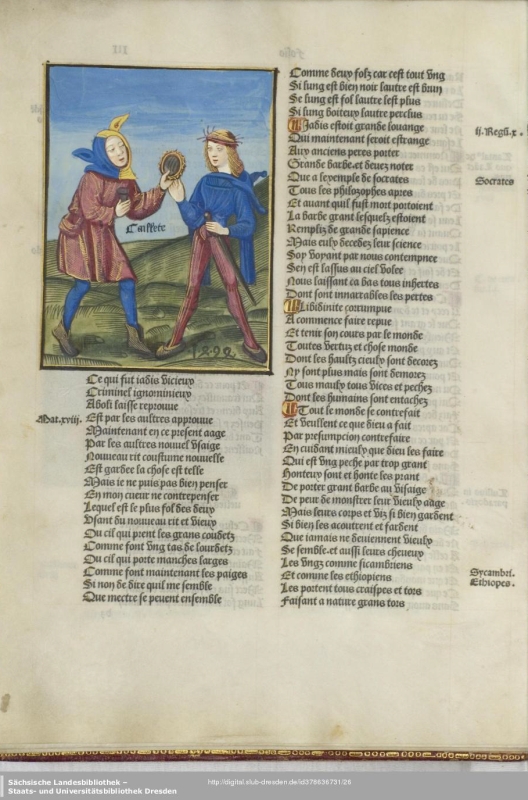 Caillette
1.4.9.2.
Ce qui fut iadis vicieux
Criminel ignominieux
Aboli laisse reprouue
Mat.xviij. Est par les aultres approuue
Maintenant en ce present aage
Par les aultres nouuel vsaige
Nouueau rit coustume nouuelle
Est gardee la chose est telle
Mais ie ne puis pas bien penser
En mon cueur ne contrepenser
Lequel est le plus fol des deux
Vsant du nouueau rit et vieux
Ou cil qui prent les grans coudetz
Comme font vng tas de lourdetz
Ou cil qui porte manches larges
Comme font maintenant les paiges
Si non de dire quil me semble
Que mectre se peuent ensemble
Comme deux folz car cest tout vng
Si lung est bien noir lautre est brun
Se lung est fol lautre lest plus
Si lung boiteux lautre perclus
Iadis estoit grande louange
ij. Regū.x.
Qui maintenant seroit estrange
Aux anciens peres porter
Grande barbe. et deuez noter
Que a lexemple de socrates
Socrates
Tous les philozophes apres
Et auant quil fust mort portoient
La barbe grant lesquelz estoient
Rempliz de grande sapience
Mais eulx decedez leur science
Soy voyant par nous contempnee
Sen est lassus au ciel volee
Nous laissant ca bas tous inhertes
Dont sont innarrables les pertes
Libidinite corrumpue
A commence faire repue
Et tenir son cours par le monde
Toutes vertuz et chose monde
Dont les haultz cieulx sont decorez
Ny sont plus mais sont demorez
Tous maulx tous vices et pechez
Dont les humains sont entachez
Tout le monde se contrefait
Et veullent ce que dieu a fait
Par presumpcion contrefaire
En cuidant mieulx que bien les faire
Qui est vng peche par trop grant
Honteux sont et honte les prant
De porter grant barbe au visaige
De peur de monstrer leur vieulx aage
Mais leurs corps et viz si bien gardent
Si bien les acoutrent et fardent
Que iamais ne deuiennent vieulx
Se semble. et aussi leurs cheueux
Les vngz comme sicambriens
Sycambri.
Et comme les ethiopiens
Ethiopes.
Les portent tous craispes et tors
Faisant a nature grans tors
Sächsische Landesbibliothek –
Staats- und Universitätsbibliothek Dresden
http://digital.slub-dresden.de/id378636731/26